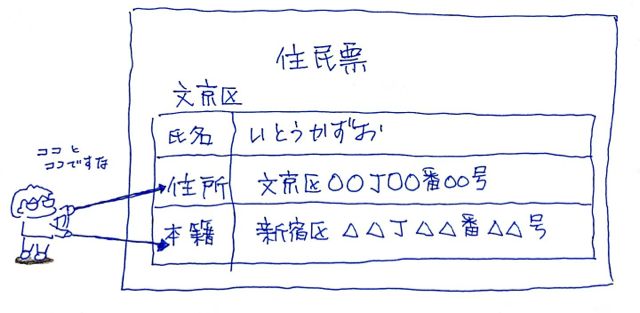 住民票
文京区
氏名 いとうかずお
ココと
ココですな
住所 文京区〇〇丁〇〇番〇〇号
本籍 新宿区 △△丁△△番△△号